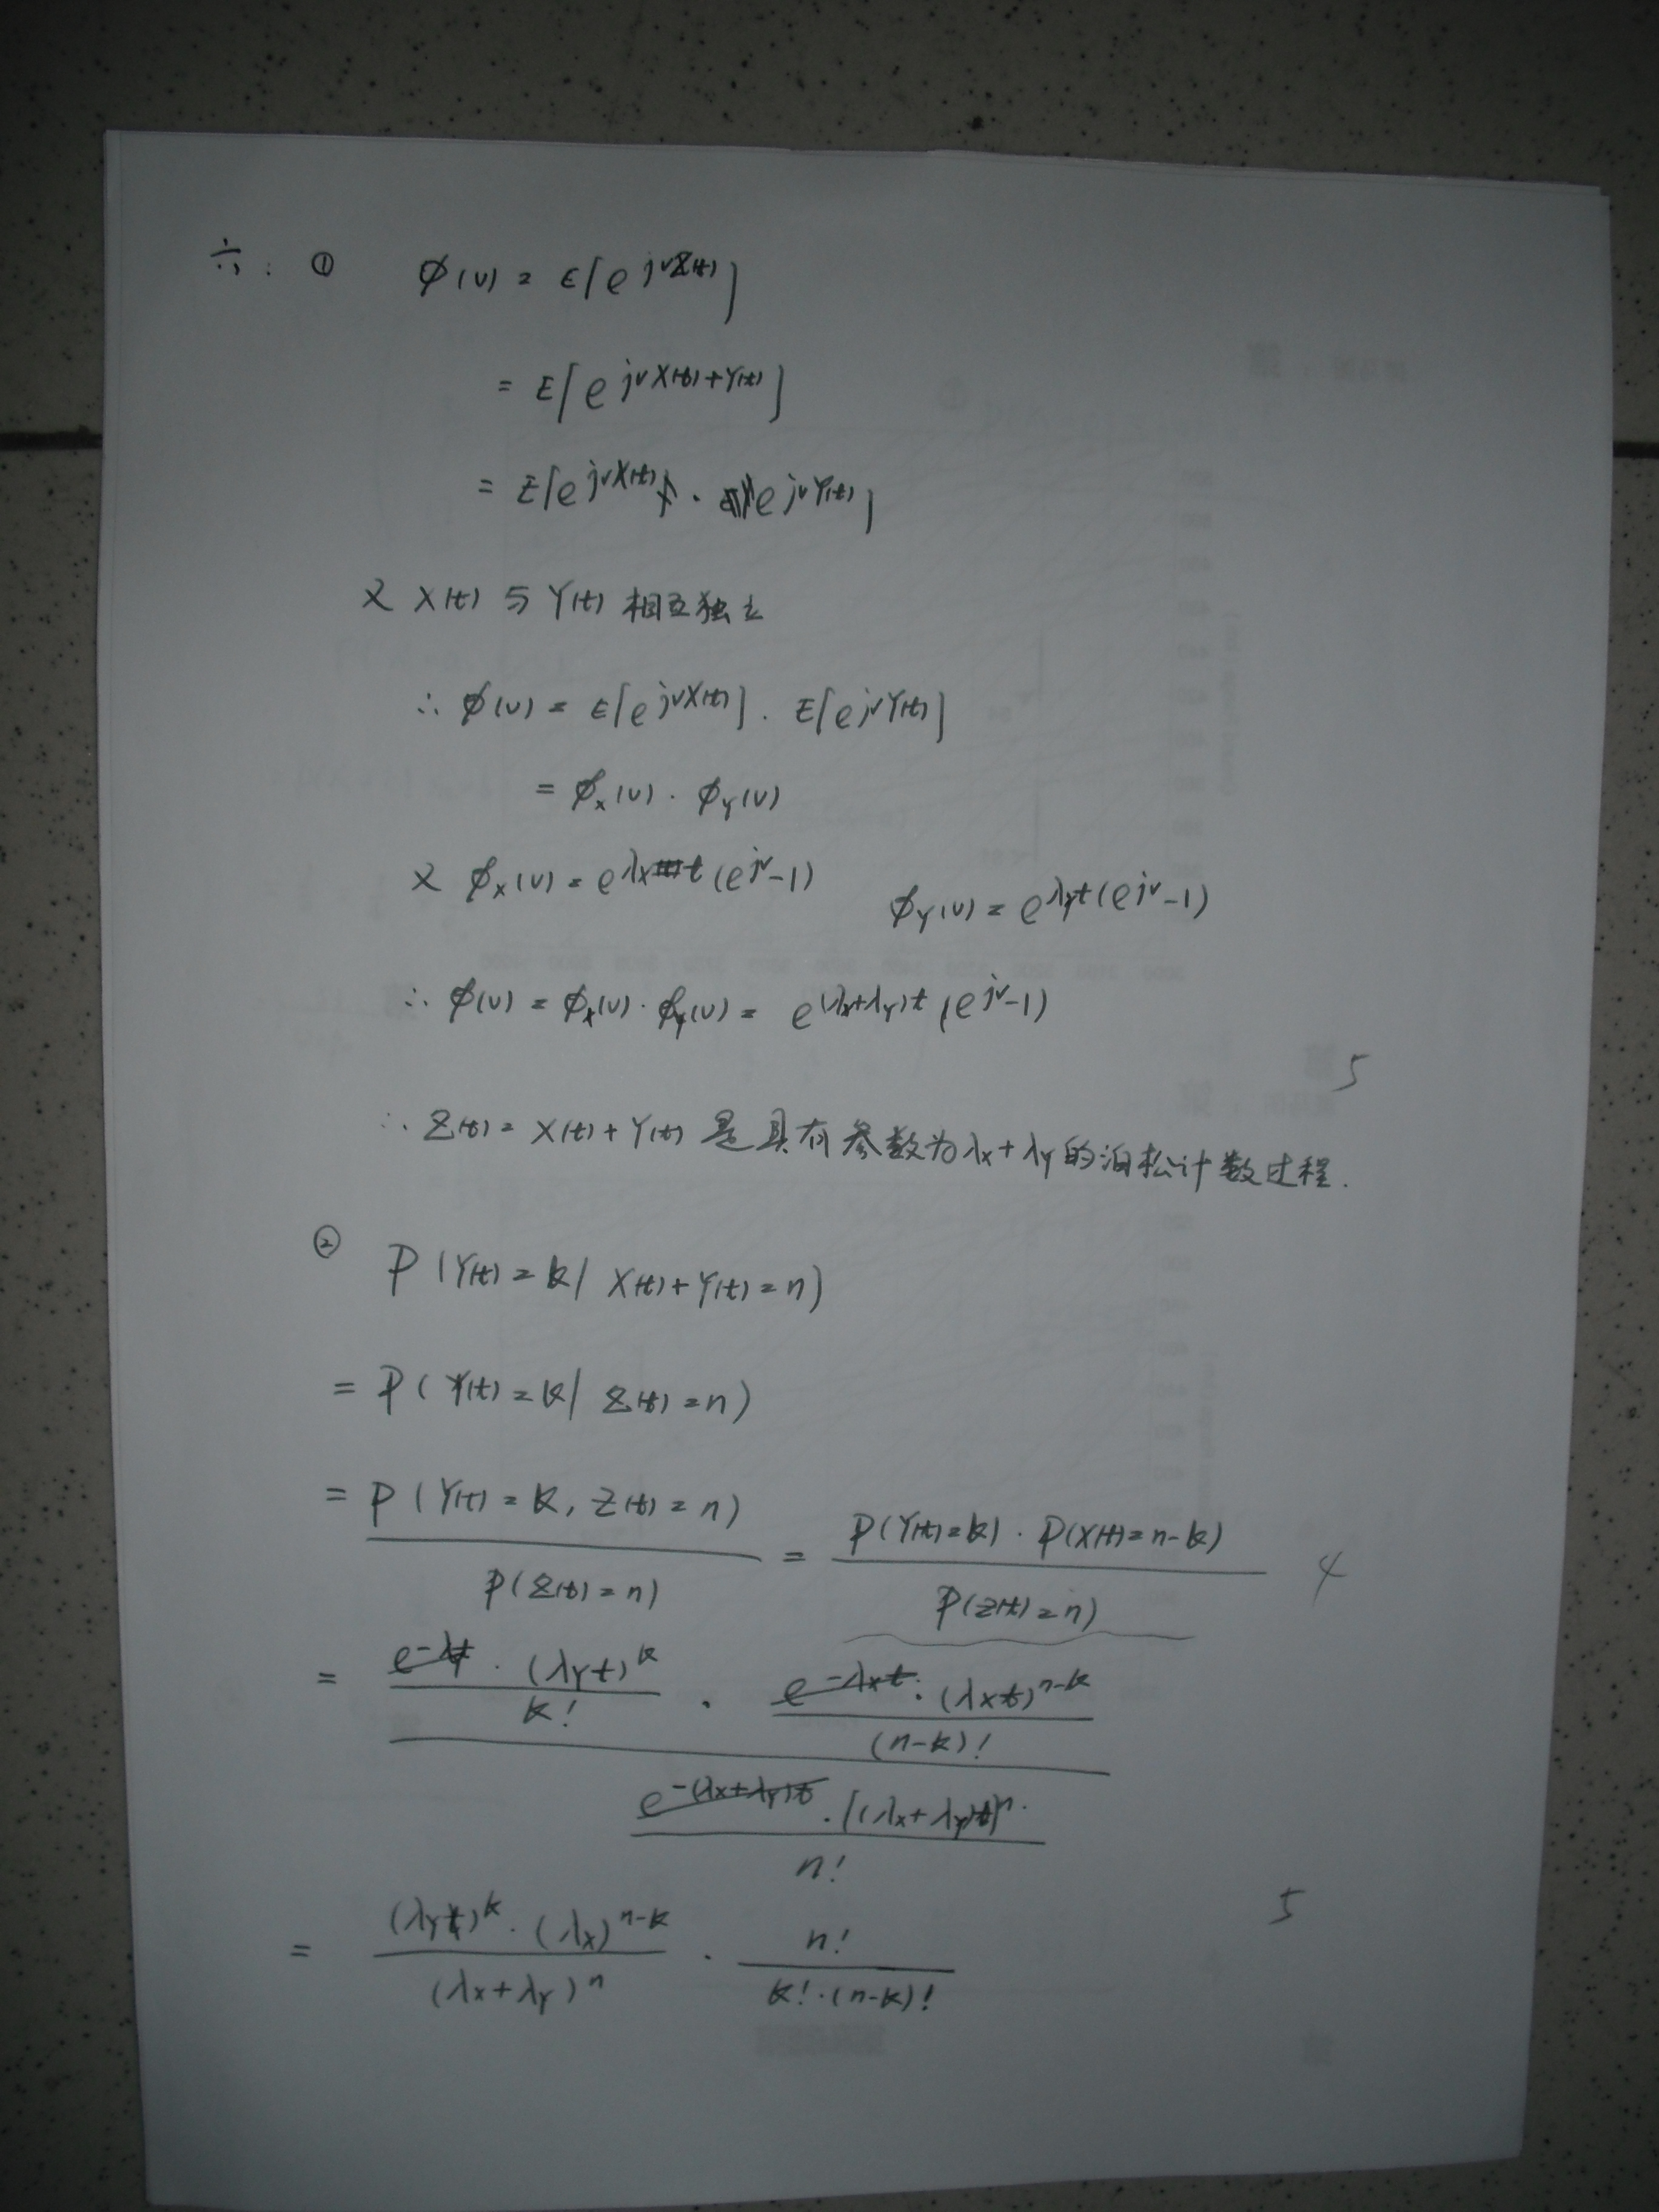 六. ① φ(v) = E[e^{jvZ(t)}]
= E[e^{jvX(t)+Y(t)}]
= E[e^{jvX(t)} · e^{jvY(t)}]
又 X(t) 与 Y(t) 相互独立
∴ φ(v) = E[e^{jvX(t)}] · E[e^{jvY(t)}]
= φ_x(v) · φ_Y(v)
又 φ_X(v) = e^{λ_X t (e^{jv}-1)} φ_Y(v) = e^{λ_Y t (e^{jv}-1)}
∴ φ(v) = φ_X(v) · φ_Y(v) = e^{(λ_X+λ_Y)t (e^{jv}-1)}
5
∴ Z(t) = X(t) + Y(t) 是具有参数为 λ_X+λ_Y 的泊松计数过程.
② P(Y(t) = k / X(t) + Y(t) = n)
= P(Y(t) = k / Z(t) = n)
= \frac{P(Y(t) = k, Z(t) = n)}{P(Z(t) = n)} = \frac{P(Y(t) = k) · P(X(t) = n-k)}{P(Z(t) = n)} 4
= \frac{\frac{e^{-λt} · (λ_Y t)^k}{k!} · \frac{e^{-λ_X t} · (λ_X t)^{n-k}}{(n-k)!}}{\frac{e^{-(λ_X+λ_Y)t} · [(λ_X+λ_Y)t]^n}{n!}}
= \frac{(λ_Y)^k · (λ_X)^{n-k}}{(λ_X+λ_Y)^n} · \frac{n!}{k!·(n-k)!} 5